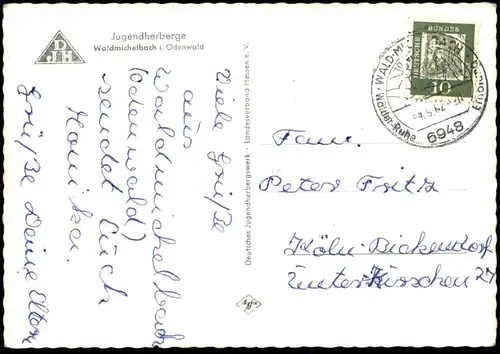 Jugendherberge
Waldmichelbach i. Odenwald
DJH
Viele Grüße
aus
Waldmichelbach
(Odenwald)
sendet Euch
Monika.
Grüße Deine Eltern
Deutsches Jugendherbergswerk - Landesverband Hessen e. V.
DEUTSCHE BUNDESPOST
10
WALD-MICHELBACH
6948
Fam.
Peter Fritz
Köln-Bickendorf
Unter Kirschen 27
Agfa